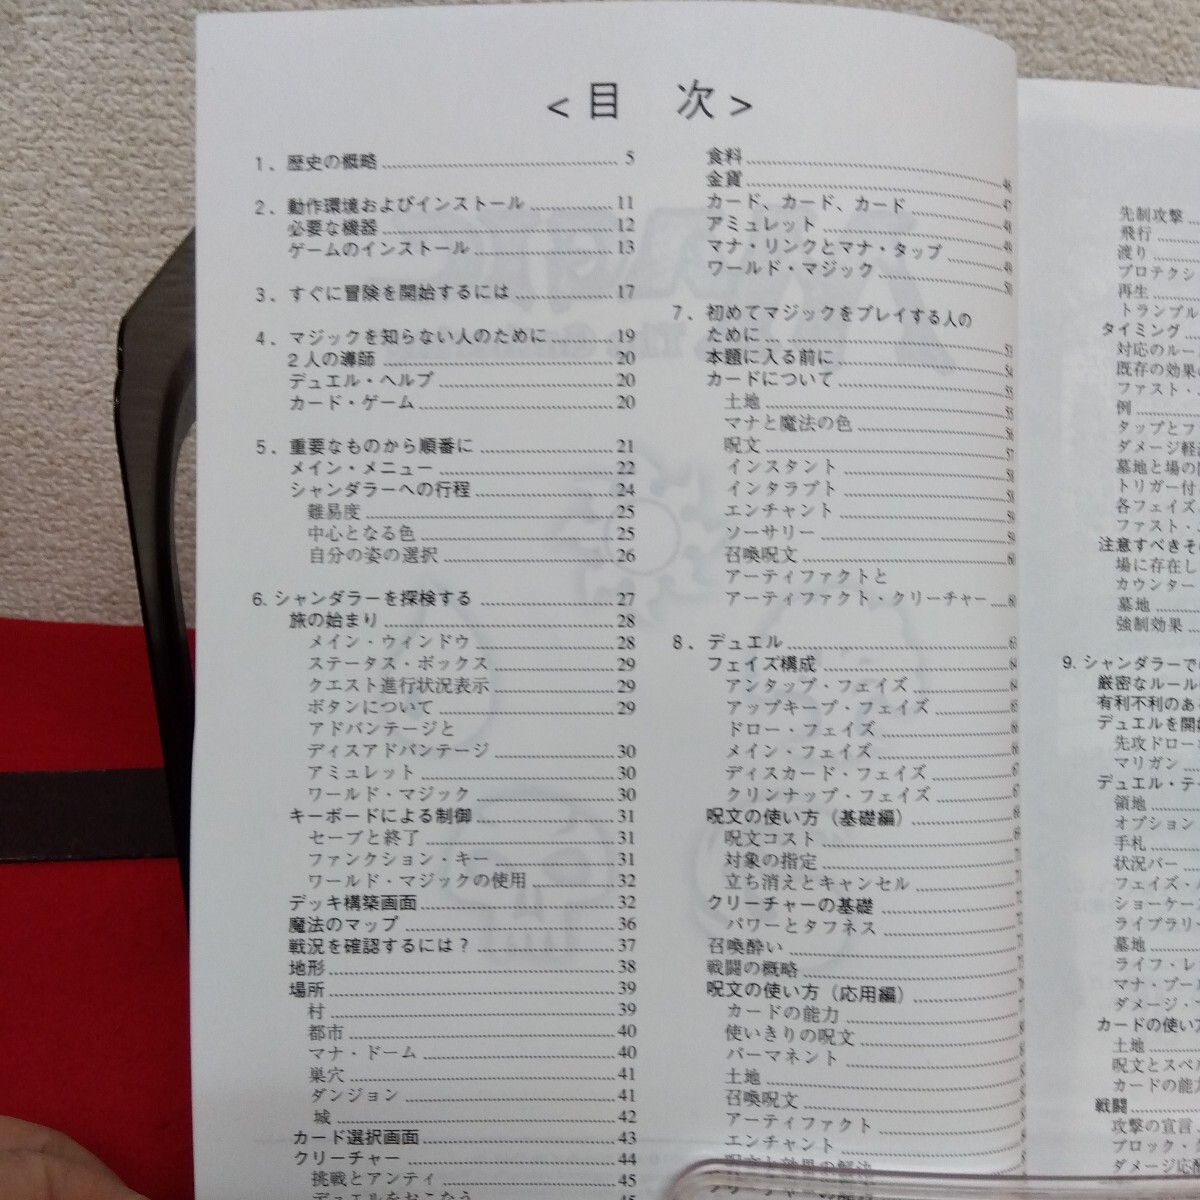 <目　次>
1．歴史の概略 5
2．動作環境およびインストール 11
必要な機器 12
ゲームのインストール 13
3．すぐに冒険を開始するには 17
4．マジックを知らない人のために 19
2人の導師 20
デュエル・ヘルプ 20
カード・ゲーム 20
5．重要なものから順番に 21
メイン・メニュー 22
シャンダラーへの行程 24
難易度 25
中心となる色 25
自分の姿の選択 26
6. シャンダラーを探検する 27
旅の始まり 28
メイン・ウィンドウ 28
ステータス・ボックス 29
クエスト進行状況表示 29
ボタンについて 29
アドバンテージと
ディスアドバンテージ 30
アミュレット 30
ワールド・マジック 30
キーボードによる制御 31
セーブと終了 31
ファンクション・キー 31
ワールド・マジックの使用 32
デッキ構築画面 32
魔法のマップ 36
戦況を確認するには？ 37
地形 38
場所 39
村 39
都市 40
マナ・ドーム 40
巣穴 41
ダンジョン 41
城 42
カード選択画面 43
クリーチャー 44
挑戦とアンティ 45
デュエルをおこなう 45
食料 46
金貨 47
カード、カード、カード 48
アミュレット 49
マナ・リンクとマナ・タップ 49
ワールド・マジック 50
7．初めてマジックをプレイする人の
ために… 53
本題に入る前に 54
カードについて 55
土地 55
マナと魔法の色 56
呪文 57
インスタント 58
インタラプト 58
エンチャント 59
ソーサリー 59
召喚呪文 60
アーティファクトと
アーティファクト・クリーチャー 60
8．デュエル 63
フェイズ構成 64
アンタップ・フェイズ 64
アップキープ・フェイズ 65
ドロー・フェイズ 66
メイン・フェイズ 66
ディスカード・フェイズ 67
クリンナップ・フェイズ 67
呪文の使い方（基礎編） 68
呪文コスト 69
対象の指定
立ち消えとキャンセル
クリーチャーの基礎
パワーとタフネス
召喚酔い
戦闘の概略
呪文の使い方（応用編）
カードの能力
使いきりの呪文
パーマネント
土地
召喚呪文
アーティファクト
エンチャント
呪文と効果の解決
クリーチャーの能力
先制攻撃
飛行
渡り
プロテクシ
再生
トランプル
タイミング
対応のルー
既存の効果の
ファスト・
例
タップとフ
ダメージ軽
墓地と場の
トリガー付
各フェイズ
ファスト・
注意すべきそ
場に存在し
カウンター
墓地
強制効果
9. シャンダラーでの
厳密なルール
有利不利のあ
デュエルを開始
先攻ドロー
マリガン
デュエル・テ
領地
オプション
手札
状況バー
フェイズ・
ショーケース
ライブラリー
墓地
ライフ・レ
マナ・プール
ダメージ・
カードの使い方
土地
呪文とスペル
カードの能力
戦闘
攻撃の宣言
ブロック・
ダメージ応酬